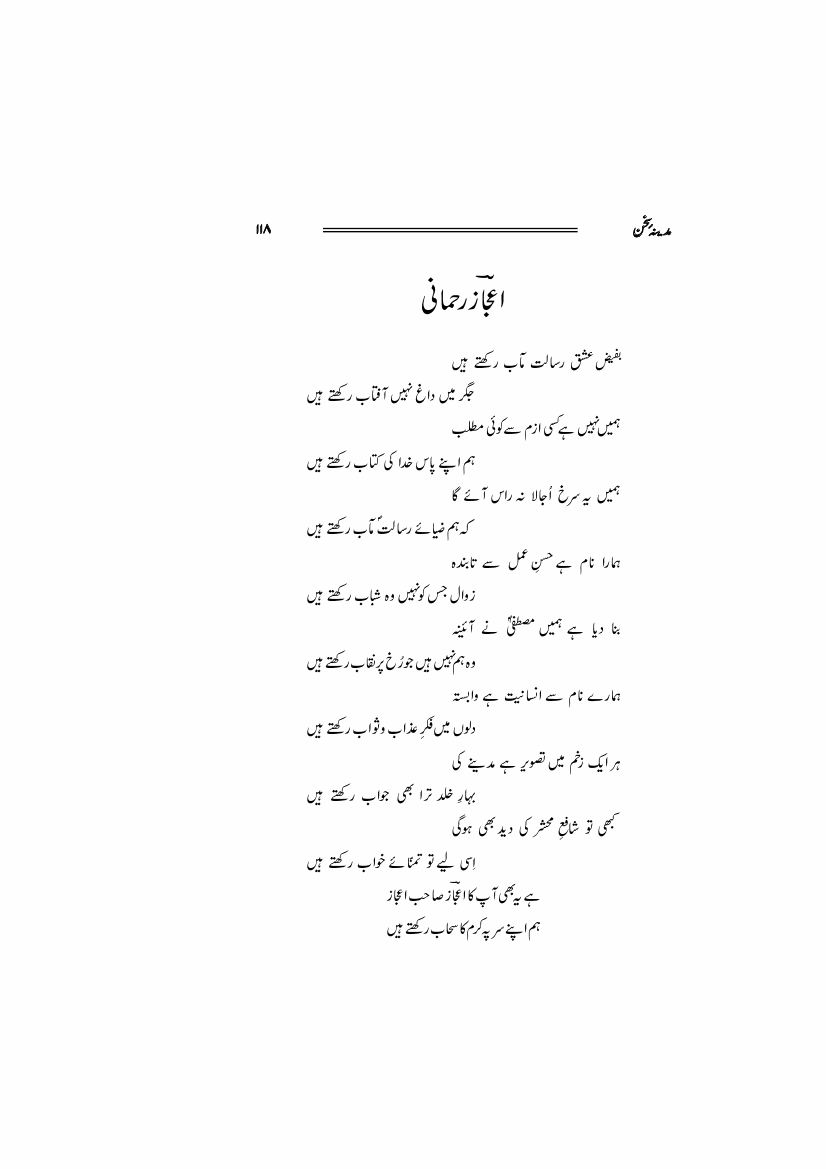 مدینۂ سخن ۱۱۸
اعجازؔ رحمانی
بفیض عشق رسالت مآب رکھتے ہیں
جگر میں داغ نہیں آفتاب رکھتے ہیں
ہمیں نہیں ہے کسی ازم سے کوئی مطلب
ہم اپنے پاس خدا کی کتاب رکھتے ہیں
ہمیں یہ سرخ اُجالا نہ راس آئے گا
کہ ہم ضیائے رسالتؐ مآب رکھتے ہیں
ہمارا نام ہے حسنِ عمل سے تابندہ
زوال جس کو نہیں وہ شباب رکھتے ہیں
بنا دیا ہے ہمیں مصطفیٰؐ نے آئینہ
وہ ہم نہیں ہیں جو رُخ پر نقاب رکھتے ہیں
ہمارے نام سے انسانیت ہے وابستہ
دلوں میں فکرِ عذاب و ثواب رکھتے ہیں
ہر ایک زخم میں تصویر ہے مدینے کی
بہارِ خلد ترا بھی جواب رکھتے ہیں
کبھی تو شافعِ محشر کی دید بھی ہوگی
اِسی لیے تو تمنّائے خواب رکھتے ہیں
ہے یہ بھی آپ کا اعجازؔ صاحب اعجاز
ہم اپنے سر پہ کرم کا سحاب رکھتے ہیں